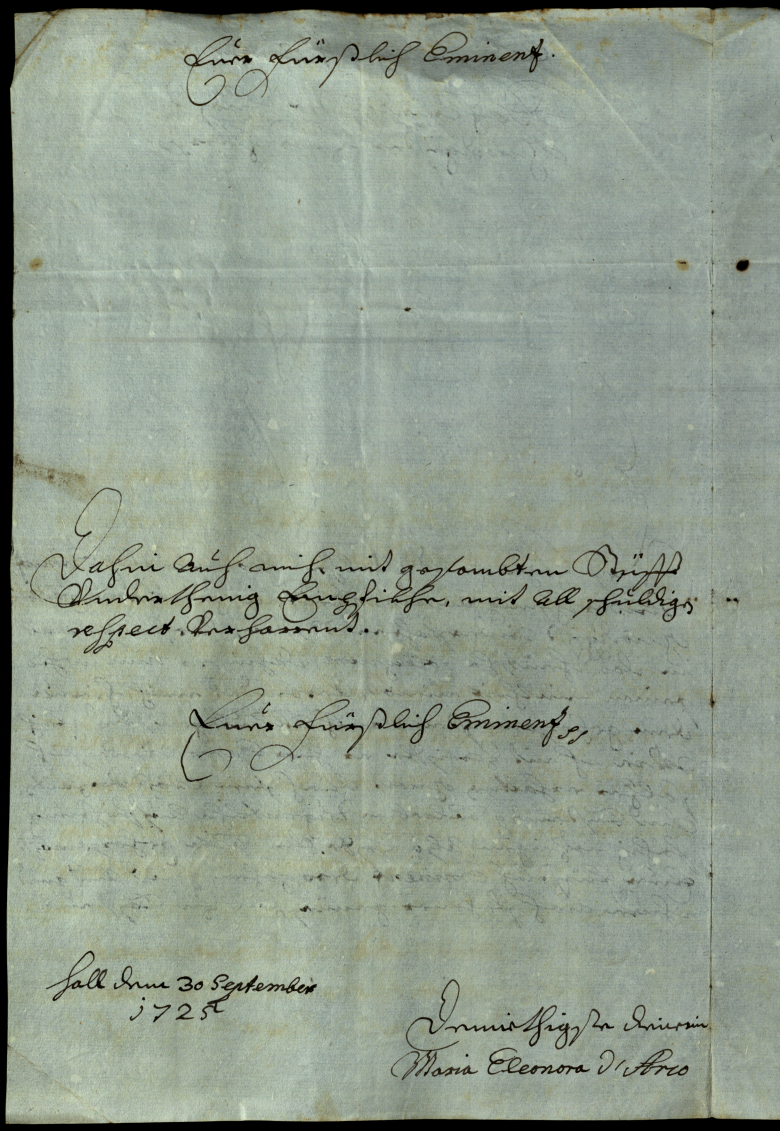 Euer Fürstlich Eminenz.
Dahin auch mich mit gesambten Stüfft
Underthenig Empfilche, mit all schuldigē
respect Verharrent.
Euer Fürstlich Eminenz
Hall dem 30 September
1725
Demüthigste dienerin
Maria Eleonora d'Arco